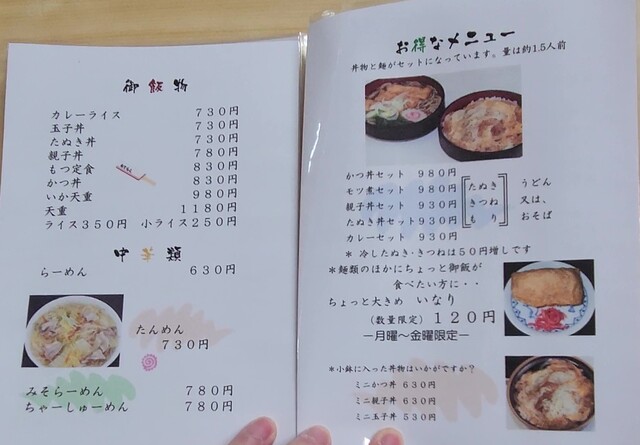 御飯物
カレーライス 730円
玉子丼 730円
たぬき丼 730円
親子丼 780円
もつ定食 830円
かつ丼 830円
いか天重 980円
天重 1180円
ライス350円 小ライス250円
中華類
らーめん 630円
たんめん
730円
みそらーめん 780円
ちゃーしゅーめん 780円
お得なメニュー
丼物と麺がセットになっています。量は約1.5人前
かつ丼セット 980円
モツ煮セット 980円
親子丼セット 930円
たぬき丼セット930円
カレーセット 930円
たぬき
きつね
もり
うどん
又は、
おそば
*冷したぬき・きつねは50円増しです
*麺類のほかにちょっと御飯が
食べたい方に・・
ちょっと大きめ いなり
(数量限定) 120円
ー月曜〜金曜限定ー
*小鉢に入った丼物はいかがですか?
ミニかつ丼 630円
ミニ親子丼 630円
ミニ玉子丼 530円